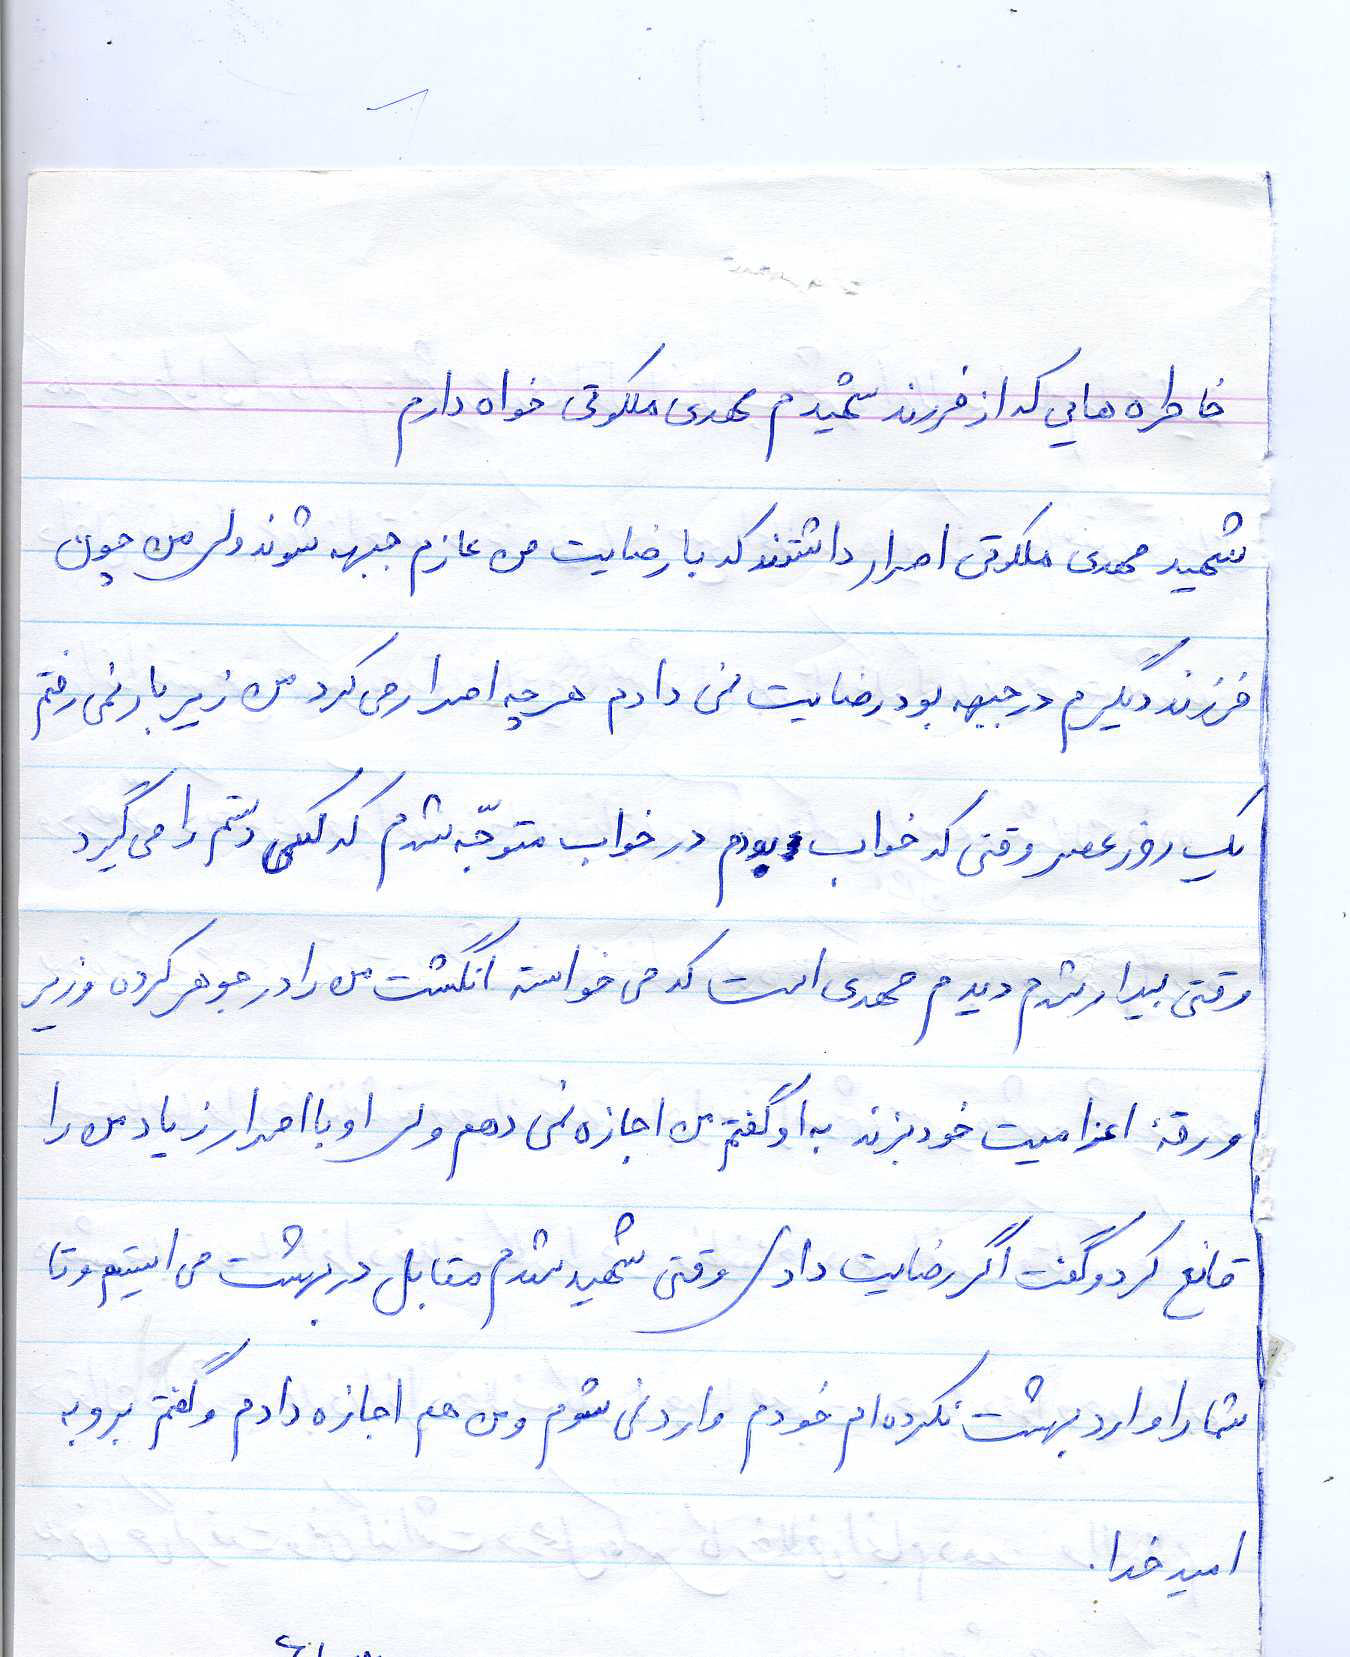 خاطره هایی که از فرزند شهیدم مهدی ملکوتی خواه دارم
شهید مهدی ملکوتی اصرار داشتند که با رضایت من عازم جبهه شوند ولی من چون
فرزند دیگرم در جبهه بود رضایت نمی دادم هر چه اصرار می کرد من زیر بار نمی رفتم
یک روز عصر وقتی که خواب بودم در خواب متوجّه شدم که کسی دستم را می گیرد
وقتی بیدار شدم دیدم مهدی است که می خواسته انگشت من را در جوهر کرده و زیر
ورقهٔ اعزامیت خود بزند به او گفتم من اجازه نمی دهم ولی او با اصرار زیاد من را
قانع کرد و گفت اگر رضایت دادی وقتی شهید شدم مقابل در بهشت می ایستیم و تا
شما را وارد بهشت نکرده ام خودم وارد نمی شوم و من هم اجازه دادم و گفتم برو به
امید خدا.